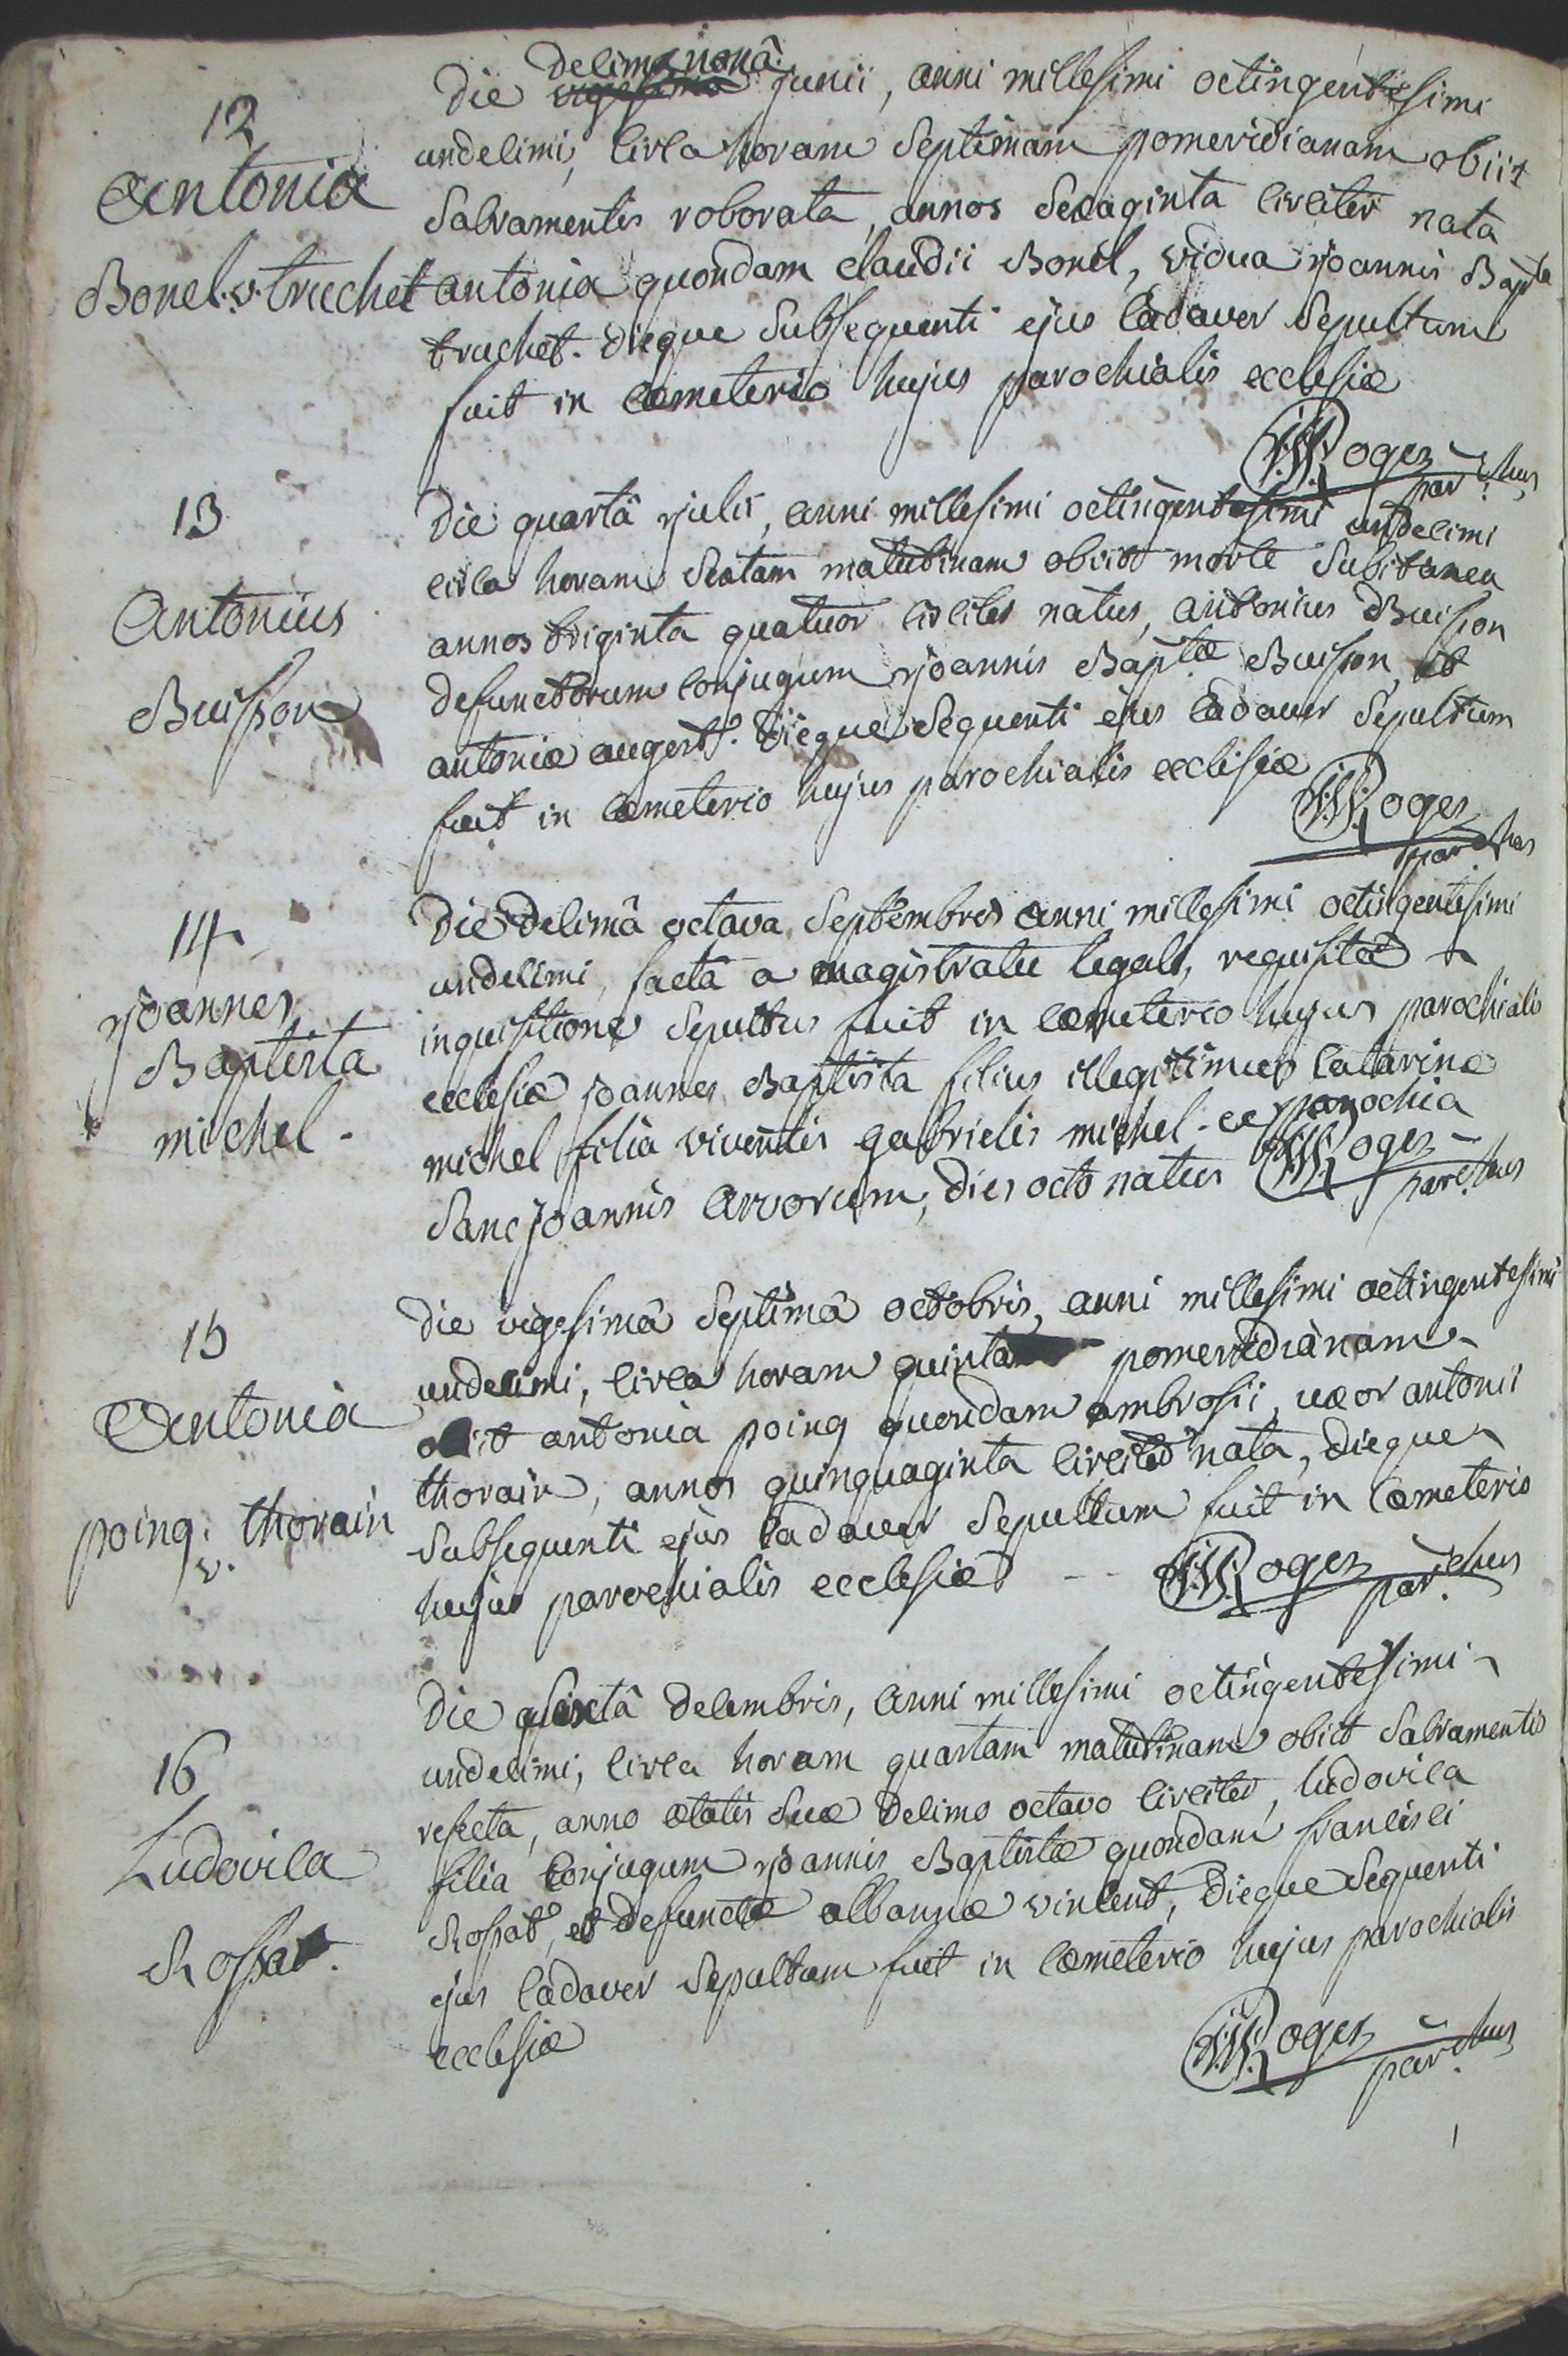 12
Antonia
Bonel. v. truchet
Die vigesima decima nonâ junii, anni millesimi octingentesimi
undecimi, circa horam septimam pomeridianam obiit
Sacramentis roborata, annos sexaginta circiter nata
antonia quondam claudii Bonel, vidua joannis Bapta
truchet. dieque subsequenti ejus cadaver sepultum
fuit in cœmeterio hujus parochialis ecclesiæ
Roger parchus
13
Antonius
Buisson
Die quartâ julii, anni millesimi octingentesimi undecimi
circa horam sextam matutinam obiit morte subitanea
annos triginta quatuor circiter natus, antonius Buisson
defunctorum conjugum joannis Baptæ Buisson, et
antoniæ augert. dieque sequenti ejus cadaver sepultum
fuit in cœmeterio hujus parochialis ecclesiæ
Roger parchus
14
joannes
Baptista
michel.
Die decimâ octava septembris anni millesimi octingentesimi
undecimi, facta a magistratu legali, requisita
inquisitione sepultus fuit in cœmeterio hujus parochialis
ecclesiæ joannes Baptista filius illegitimus catarinæ
michel filiæ viventis gabrielis michel. ex parochia
Sancjoannis arvorum, dies octo natus
Roger parchus
15
Antonia
poing. v. thorain
Die vigesimâ septimâ octobris, anni millesimi octingentesimi
undecimi, circa horam quintam pomeridianam
obiit antonia poing quondam ambrosii, uxor antonii
thorain, annos quinquaginta circiter nata, dieque
subsequenti ejus cadaver sepultum fuit in cœmeterio
hujus parochialis ecclesiæ --
Roger parchus
16
Ludovica
Rossat.
Die sextâ decembris, anni millesimi octingentesimi
undecimi, circa horam quartam matutinam obiit sacramentis
refecta, anno ætatis suæ decimo octavo circiter, ludovica
filia conjugum joannis Baptistæ quondam francisci
Rossat, et defunctæ albannæ vincent, dieque sequenti
ejus cadaver sepultum fuit in cœmeterio hujus parochialis
ecclesiæ
Roger parchus